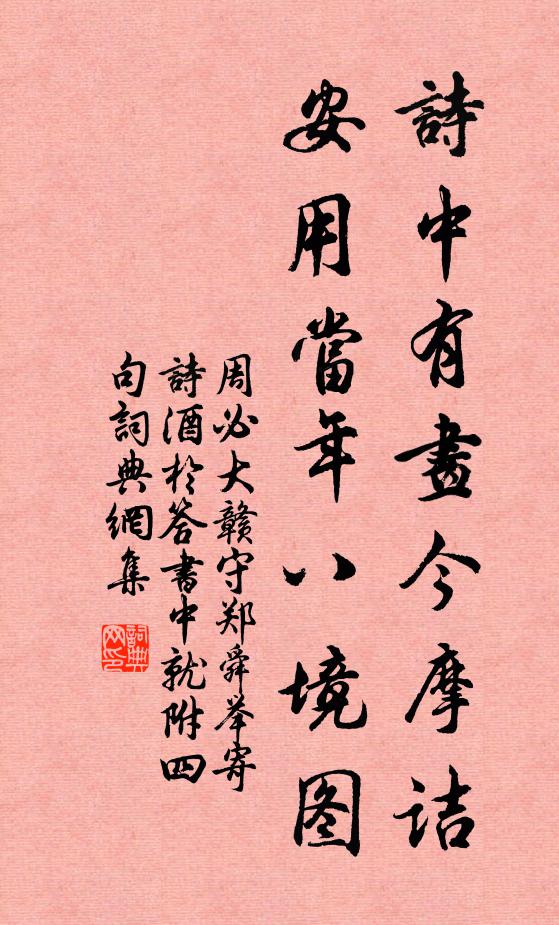 詩中有畫今摩詰
安用當年八境图
周必大贛守郑舜举寄
詩酒於答書中就附四
句詞典網集
詞典网印